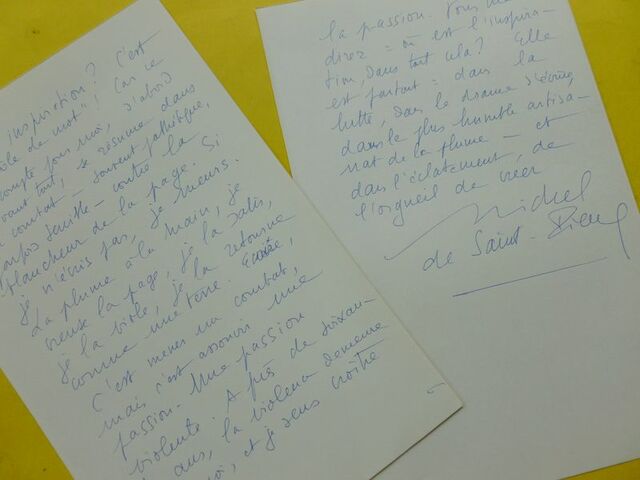 inspiration? C'est
de mot"! Car ce
compte pour moi, d'abord
avant tout, se résume dans
combat - souvent pathétique,
parfois futile - contre la
blancheur de la page. Si
je n'écris pas, je meurs.
La plume à la main, je
creuse la page, je la salis,
je la viole, je la retourne
comme une terre. Ecrire,
C'est mener un combat,
mais c'est assouvir une
passion. Une passion
violente. A près de soixan-
ans, la violence demeure
et je sens croître
la passion. Vous me
direz : où est l'inspira-
tion dans tout cela? Elle
est partout : dans la
lutte, dans le drame d'écrire,
dans le plus humble artisa-
nat de la plume - et
dans l'éclatement, de
l'orgueil de créer
Michel
de Saint-Pierre